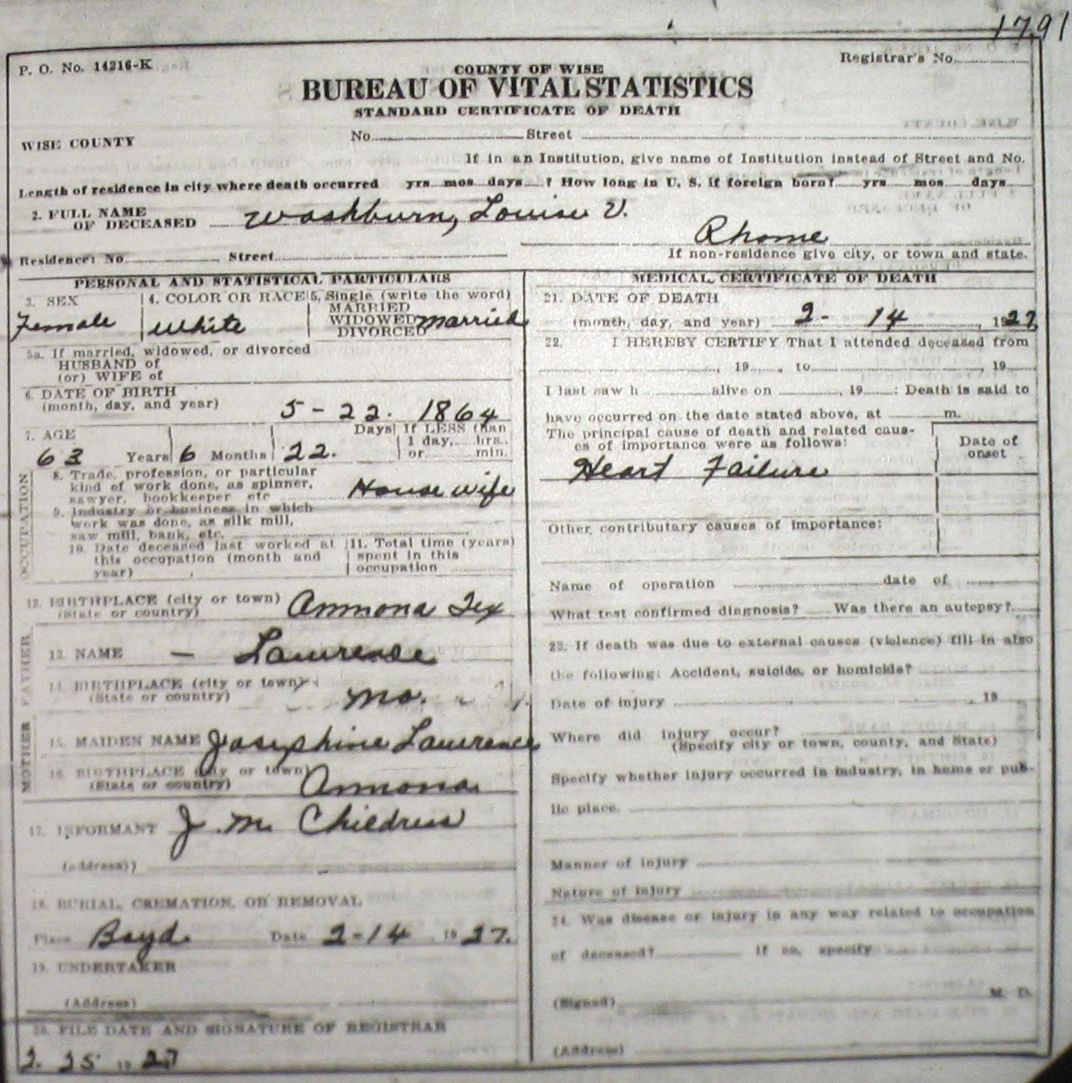 1791
P. O. No. 14216-K
Registrar's No.
COUNTY OF WISE
BUREAU OF VITAL STATISTICS
STANDARD CERTIFICATE OF DEATH
WISE COUNTY No. Street
If in an Institution, give name of Institution instead of Street and No.
Length of residence in city where death occurred yrs mos days ? How long in U. S. if foreign born? yrs mos days
2. FULL NAME OF DECEASED Washburn, Louise V.
Residence: No. Street
Rhome
If non-residence give city, or town and state.
PERSONAL AND STATISTICAL PARTICULARS
3. SEX Female
4. COLOR OR RACE White
5. Single (write the word) MARRIED WIDOWED DIVORCED Married
5a. If married, widowed, or divorced
HUSBAND of
(or) WIFE of
6. DATE OF BIRTH
(month, day, and year) 5-22. 1864
7. AGE 63 Years 6 Months 22. Days If LESS than 1 day, hrs. or min.
OCCUPATION
8. Trade, profession, or particular
kind of work done, as spinner,
sawyer, bookkeeper etc House wife
9. Industry or business in which
work was done, as silk mill,
saw mill, bank, etc.
10. Date deceased last worked at
this occupation (month and
year)
11. Total time (years)
spent in this
occupation
12. BIRTHPLACE (city or town)
(State or country) Annona Tex
FATHER
13. NAME — Lawrence
14. BIRTHPLACE (city or town)
(State or country) Mo.
MOTHER
15. MAIDEN NAME Josephine Lawrence
16. BIRTHPLACE (city or town)
(State or country) Annona
17. INFORMANT J. M. Childress
(address)
18. BURIAL, CREMATION, OR REMOVAL
Place Boyd Date 2-14 1927.
19. UNDERTAKER
(Address)
20. FILE DATE AND SIGNATURE OF REGISTRAR
2. 25 1927
MEDICAL CERTIFICATE OF DEATH
21. DATE OF DEATH
(month, day, and year) 2- 14, 1927
22. I HEREBY CERTIFY That I attended deceased from
, 19 , to , 19
I last saw h alive on , 19 : Death is said to
have occurred on the date stated above, at m.
The principal cause of death and related caus-
es of importance were as follows:
Date of
onset
Heart Failure
Other contributary causes of importance:
Name of operation date of
What test confirmed diagnosis? Was there an autopsy?
23. If death was due to external causes (violence) fill in also
the following: Accident, suicide, or homicide?
Date of injury , 19
Where did injury occur?
(Specify city or town, county, and State)
Specify whether injury occurred in industry, in home or pub-
lic place.
Manner of injury
Nature of injury
24. Was disease or injury in any way related to occupation
of deceased? If so, specify
(Signed) M. D.
(Address)